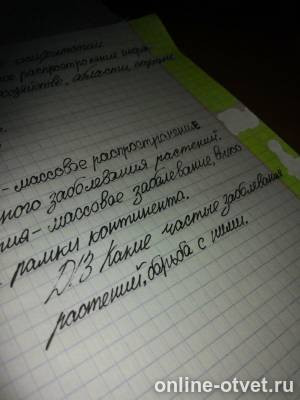 массовое распространение
ного заболевания растений.
ия - массовое заболевание, выхо
рамки континента.
D/З Какие частые заболевания
растений, борьба с ними.
online-otvet.ru